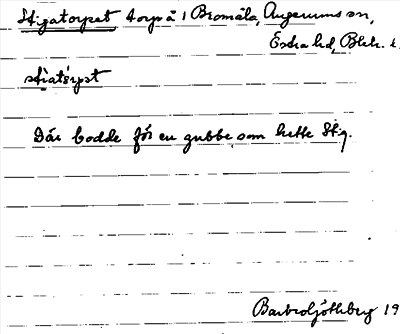 Stigatorpet torp å 1 Bromåla, Augerums sn,
Östra hd, Blek. l.
stiatórpet
Där bodde för en gubbe som hette Stig.
Barbro Göthberg 19